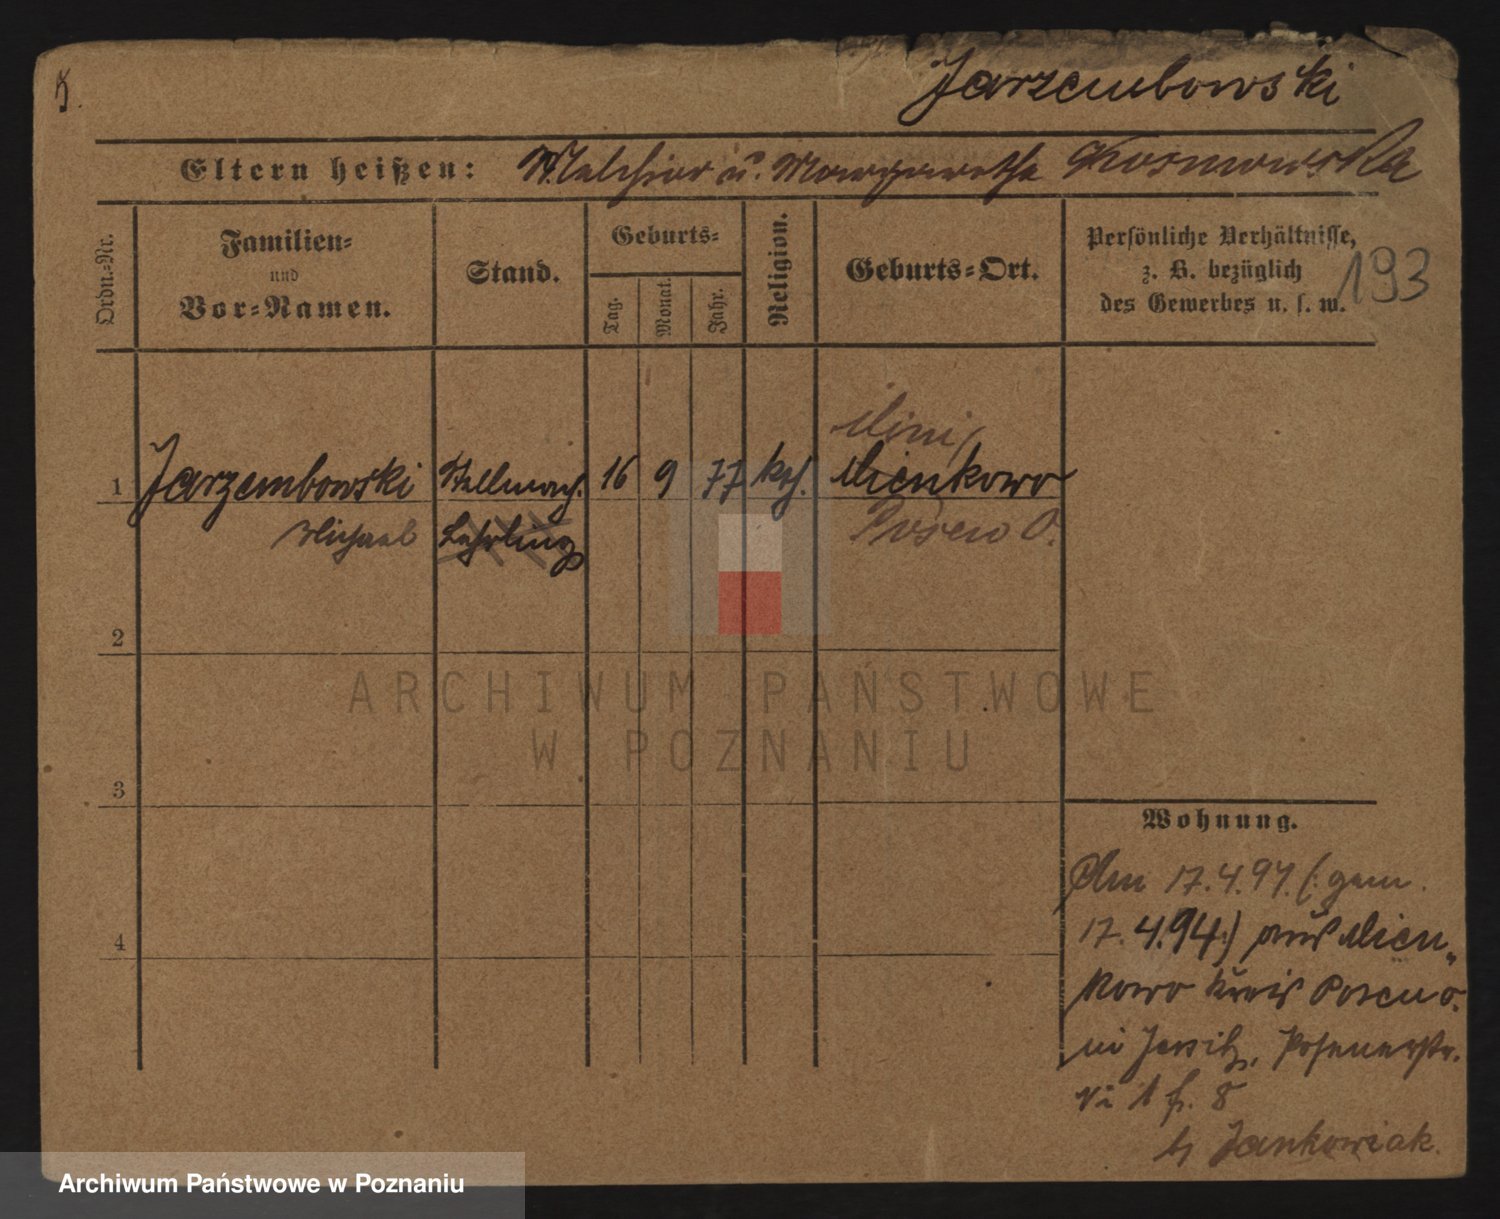 Jarzembowski
Eltern heißen: Melchior u. Margarethe Kosmowska
Ordn.-Nr.
Familien-
und
Vor-Namen.
Stand.
Geburts-
Tag.
Monat.
Jahr.
Religion.
Geburts-Ort.
Persönliche Verhältnisse,
z. B. bezüglich
des Gewerbes u. s. w.
193
1 Jarzembowski Stellmach. 16 9 77 kth. Mienkowo
Michael Lehrling Posen O.
2
3
4
Wohnung.
Am 17.4.94. (: gem.
17.4.94:) aus Mien-
kowo Kreis Posen O.
in Jersitz, Posenerstr.
8
b. Jankowiak.
ARCHIWUM PAŃSTWOWE
W POZNANIU
Archiwum Państwowe w Poznaniu